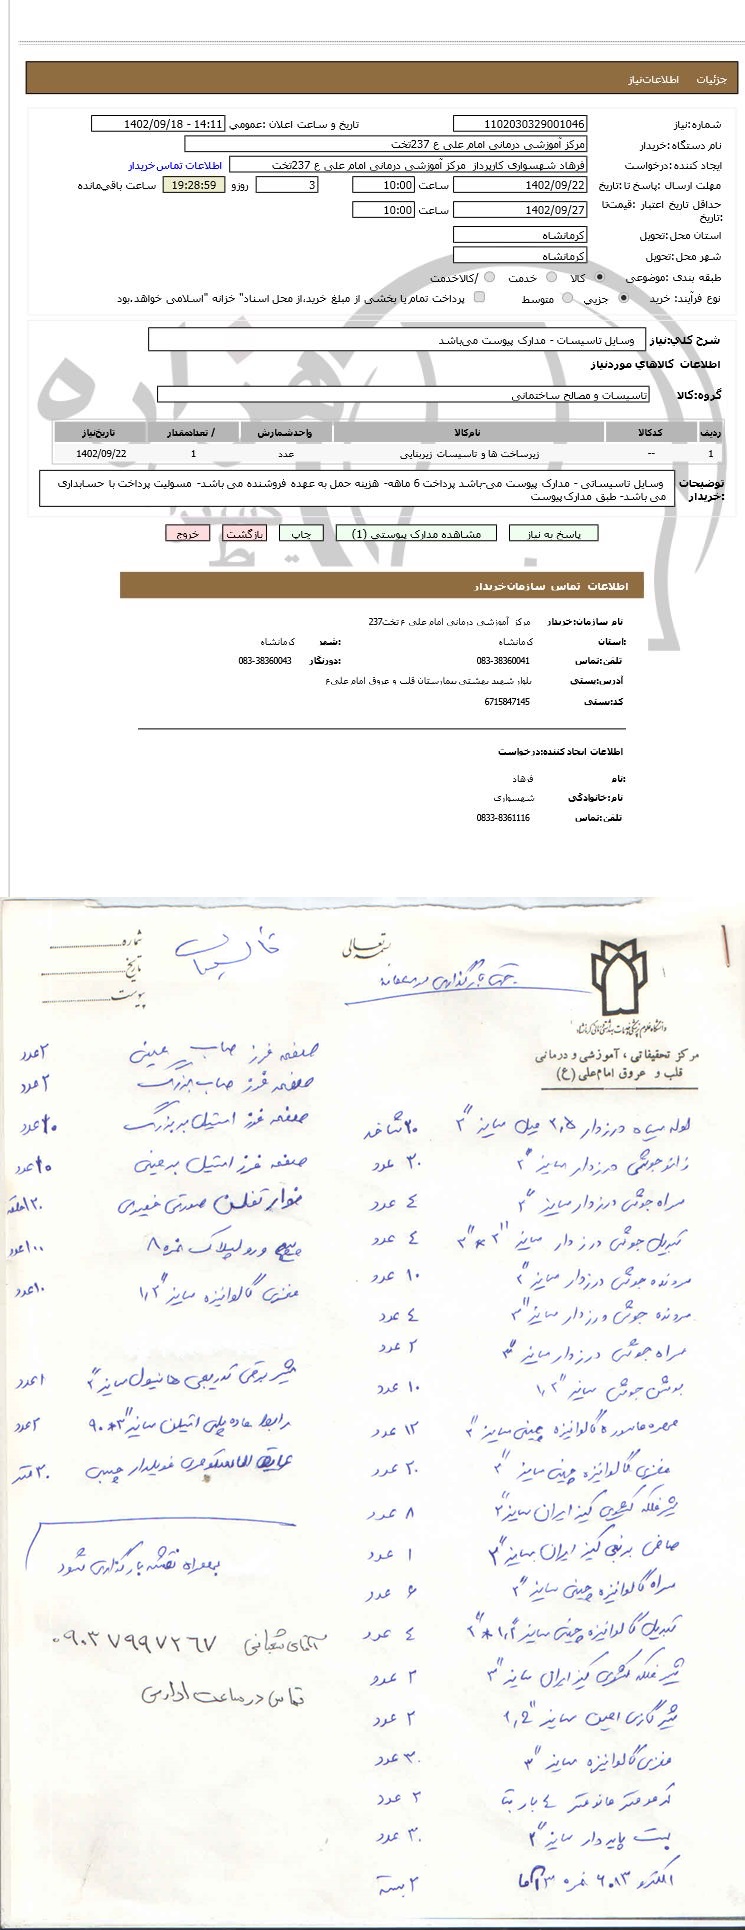 جزئیات اطلاعات نیاز
شماره نیاز: 1102030329001046 تاریخ و ساعت اعلان عمومی: 1402/09/18 - 14:11
نام دستگاه خریدار: مرکز آموزشی درمانی امام علی ع 237تخت
ایجاد کننده درخواست: فرهاد شهسواری کارپرداز مرکز آموزشی درمانی امام علی ع 237تخت اطلاعات تماس خریدار
مهلت ارسال پاسخ تا: تاریخ: 1402/09/22 ساعت 10:00 3 روز و 19:28:59 ساعت باقی‌مانده
حداقل تاریخ اعتبار قیمت: تا تاریخ: 1402/09/27 ساعت 10:00
استان محل تحویل: کرمانشاه
شهر محل تحویل: کرمانشاه
طبقه بندی موضوعی: کالا خدمت کالا/خدمت
نوع فرآیند خرید: جزیی متوسط پرداخت تمام یا بخشی از مبلغ خرید،از محل "اسناد خزانه اسلامی" خواهد بود.
شرح کلي نیاز: وسایل تاسیسات - مدارک پیوست می‌باشد
اطلاعات کالاهاي مورد نیاز
گروه کالا: تاسیسات و مصالح ساختمانی
ردیف کد کالا نام کالا واحد شمارش تعداد / مقدار تاریخ نیاز
1 -- زیرساخت ها و تاسیسات زیربنایی عدد 1 1402/09/22
توضیحات خریدار: وسایل تاسیساتی - مدارک پیوست می-باشد پرداخت 6 ماهه- هزینه حمل به عهده فروشنده می باشد- مسولیت پرداخت با حسابداری
می باشد- طبق مدارک پیوست
پاسخ به نیاز مشاهده مدارک پیوستی (1) چاپ بازگشت خروج
اطلاعات تماس سازمان خریدار
نام سازمان خریدار: مرکز آموزشی درمانی امام علی ع 237تخت
استان: کرمانشاه شهر: کرمانشاه
تلفن تماس: 083-38360041 دورنگار: 083-38360043
آدرس پستی: بلوار شهید بهشتی بیمارستان قلب و عروق امام علی ع
کد پستی: 6715847145
اطلاعات ایجاد کننده درخواست:
نام: فرهاد
نام خانوادگی: شهسواری
تلفن تماس: 0833-8361116
بسمه تعالی
شماره:
تاریخ:
پیوست:
دانشگاه علوم پزشکی و خدمات بهداشتی درمانی کرمانشاه
مرکز تحقیقاتی ، آموزشی و درمانی
قلب و عروق امام علی (ع)
لوله سیاه درزدار ۲,۵ میل سایز "۳ ۲۰ شاخه
زانو جوشی درزدار سایز "۳ ۳۰ عدد
سراه جوشی درزدار سایز "۳ ٤ عدد
تبدیل جوشی درزدار سایز "۲*"۳ ٤ عدد
سردنده جوشی درزدار سایز "۲ ۱۰ عدد
سردنده جوشی درزدار سایز "۳ ٤ عدد
سراه جوشی درزدار سایز "۳ ۲ عدد
بوشن جوشی سایز "۱/۲ ۱۰ عدد
مهره ماسوره گالوانیزه چینی سایز "۲ ۱۲ عدد
مغزی گالوانیزه چینی سایز "۲ ۲۰ عدد
شیرفلکه کشویی کیز ایران سایز "۲ ۸ عدد
صافی برنجی کیز ایران سایز "۳ ۱ عدد
سراه گالوانیزه چینی سایز "۲ ۶ عدد
تبدیل گالوانیزه چینی سایز "۱/۲*"۲ ٤ عدد
شیر فلکه کشویی کیز ایران سایز "۳ ۲ عدد
شیر گازی سایز "۱/۲ ۲ عدد
مغزی گالوانیزه سایز "۳ ۳۰ عدد
ترمومتر مانومتر ٤ بار ۲ عدد
بست پایه دار سایز "۳ ۳۰ عدد
الکترود ۶۰۱۳ نمره ۳ آما ۲ بسته
صفحه فرز ساب مینی ۲ عدد
صفحه فرز ساب بزرگ ۲ عدد
صفحه فرز استیل بر بزرگ ۲۰ عدد
صفحه فرز استیل بر مینی ۲۰ عدد
نوار تفلون ۳۰ حلقه
پیچ و رولپلاک نمره ۸ ۱۰۰ عدد
مغزی گالوانیزه سایز "۱/۲ ۱۰ عدد
شیر برقی تدریجی هانیول سایز "۲ ۱ عدد
رابط ماده پلی اتیلن سایز "۳*۹۰ ۲ عدد
عایق الاستومری فویلدار چسب ۳۰ متر
بهمراه نقشه بارگذاری شود
آقای شعبانی ۰۹۰۳۷۹۹۷۲۶۷
تماس در ساعت اداری